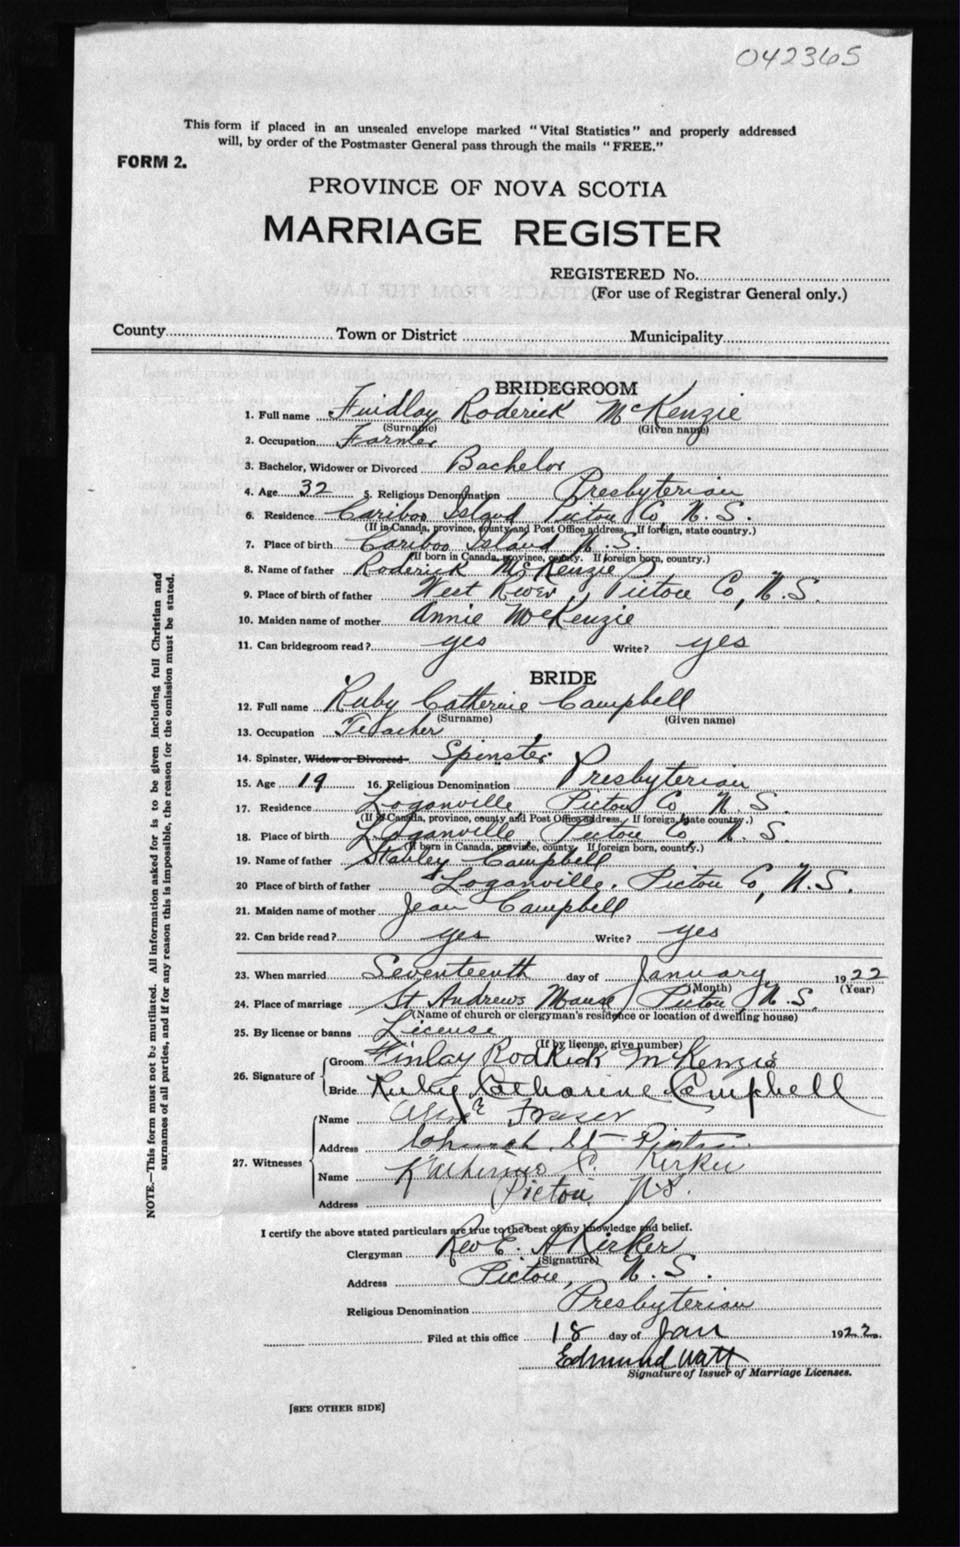 042365
This form if placed in an unsealed envelope marked "Vital Statistics" and properly addressed
will, by order of the Postmaster General pass through the mails "FREE."
FORM 2.
PROVINCE OF NOVA SCOTIA
MARRIAGE REGISTER
REGISTERED No.
(For use of Registrar General only.)
County Town or District Municipality
BRIDEGROOM
1. Full name Findlay Roderick McKenzie
(Surname) (Given name)
2. Occupation Farmer
3. Bachelor, Widower or Divorced Bachelor
4. Age 32 5. Religious Denomination Presbyterian
6. Residence Cariboo Island Pictou Co, N. S.
(If in Canada, province, county and Post Office address. If foreign, state country.)
7. Place of birth Cariboo Island N. S.
(If born in Canada, province, county. If foreign born, country.)
8. Name of father Roderick McKenzie
9. Place of birth of father West River, Pictou Co, N. S.
10. Maiden name of mother Annie McKenzie
11. Can bridegroom read? yes Write? yes
BRIDE
12. Full name Ruby Catherine Campbell
(Surname) (Given name)
13. Occupation Teacher
14. Spinster, Widow or Divorced Spinster
15. Age 19 16. Religious Denomination Presbyterian
17. Residence Loganville Pictou Co N. S.
(If in Canada, province, county and Post Office address. If foreign, state country.)
18. Place of birth Loganville, Pictou Co, N. S.
(If born in Canada, province, county. If foreign born, country.)
19. Name of father Stanley Campbell
20 Place of birth of father Loganville, Pictou Co, N. S.
21. Maiden name of mother Jean Campbell
22. Can bride read? yes Write? yes
23. When married Seventeenth day of January 1922
(Month) (Year)
24. Place of marriage St Andrews Manse Pictou N. S.
(Name of church or clergyman's residence or location of dwelling house)
25. By license or banns License
(If by license, give number)
26. Signature of Groom Finlay Rodrick McKenzie
Bride Ruby Catharine Campbell
27. Witnesses Name Fraser
Address Church St Pictou
Name Katherine Kirker
Address Pictou N.S.
I certify the above stated particulars are true to the best of my knowledge and belief.
Clergyman Rev E. A Kirker
(Signature)
Address Pictou, N. S.
Religious Denomination Presbyterian
Filed at this office 18 day of Jan 1922.
Edmund Watt
Signature of Issuer of Marriage Licenses.
[SEE OTHER SIDE]
NOTE.—This form must not be mutilated. All information asked for is to be given including full Christian and
surnames of all parties, and if for any reason this is impossible, the reason for the omission must be stated.